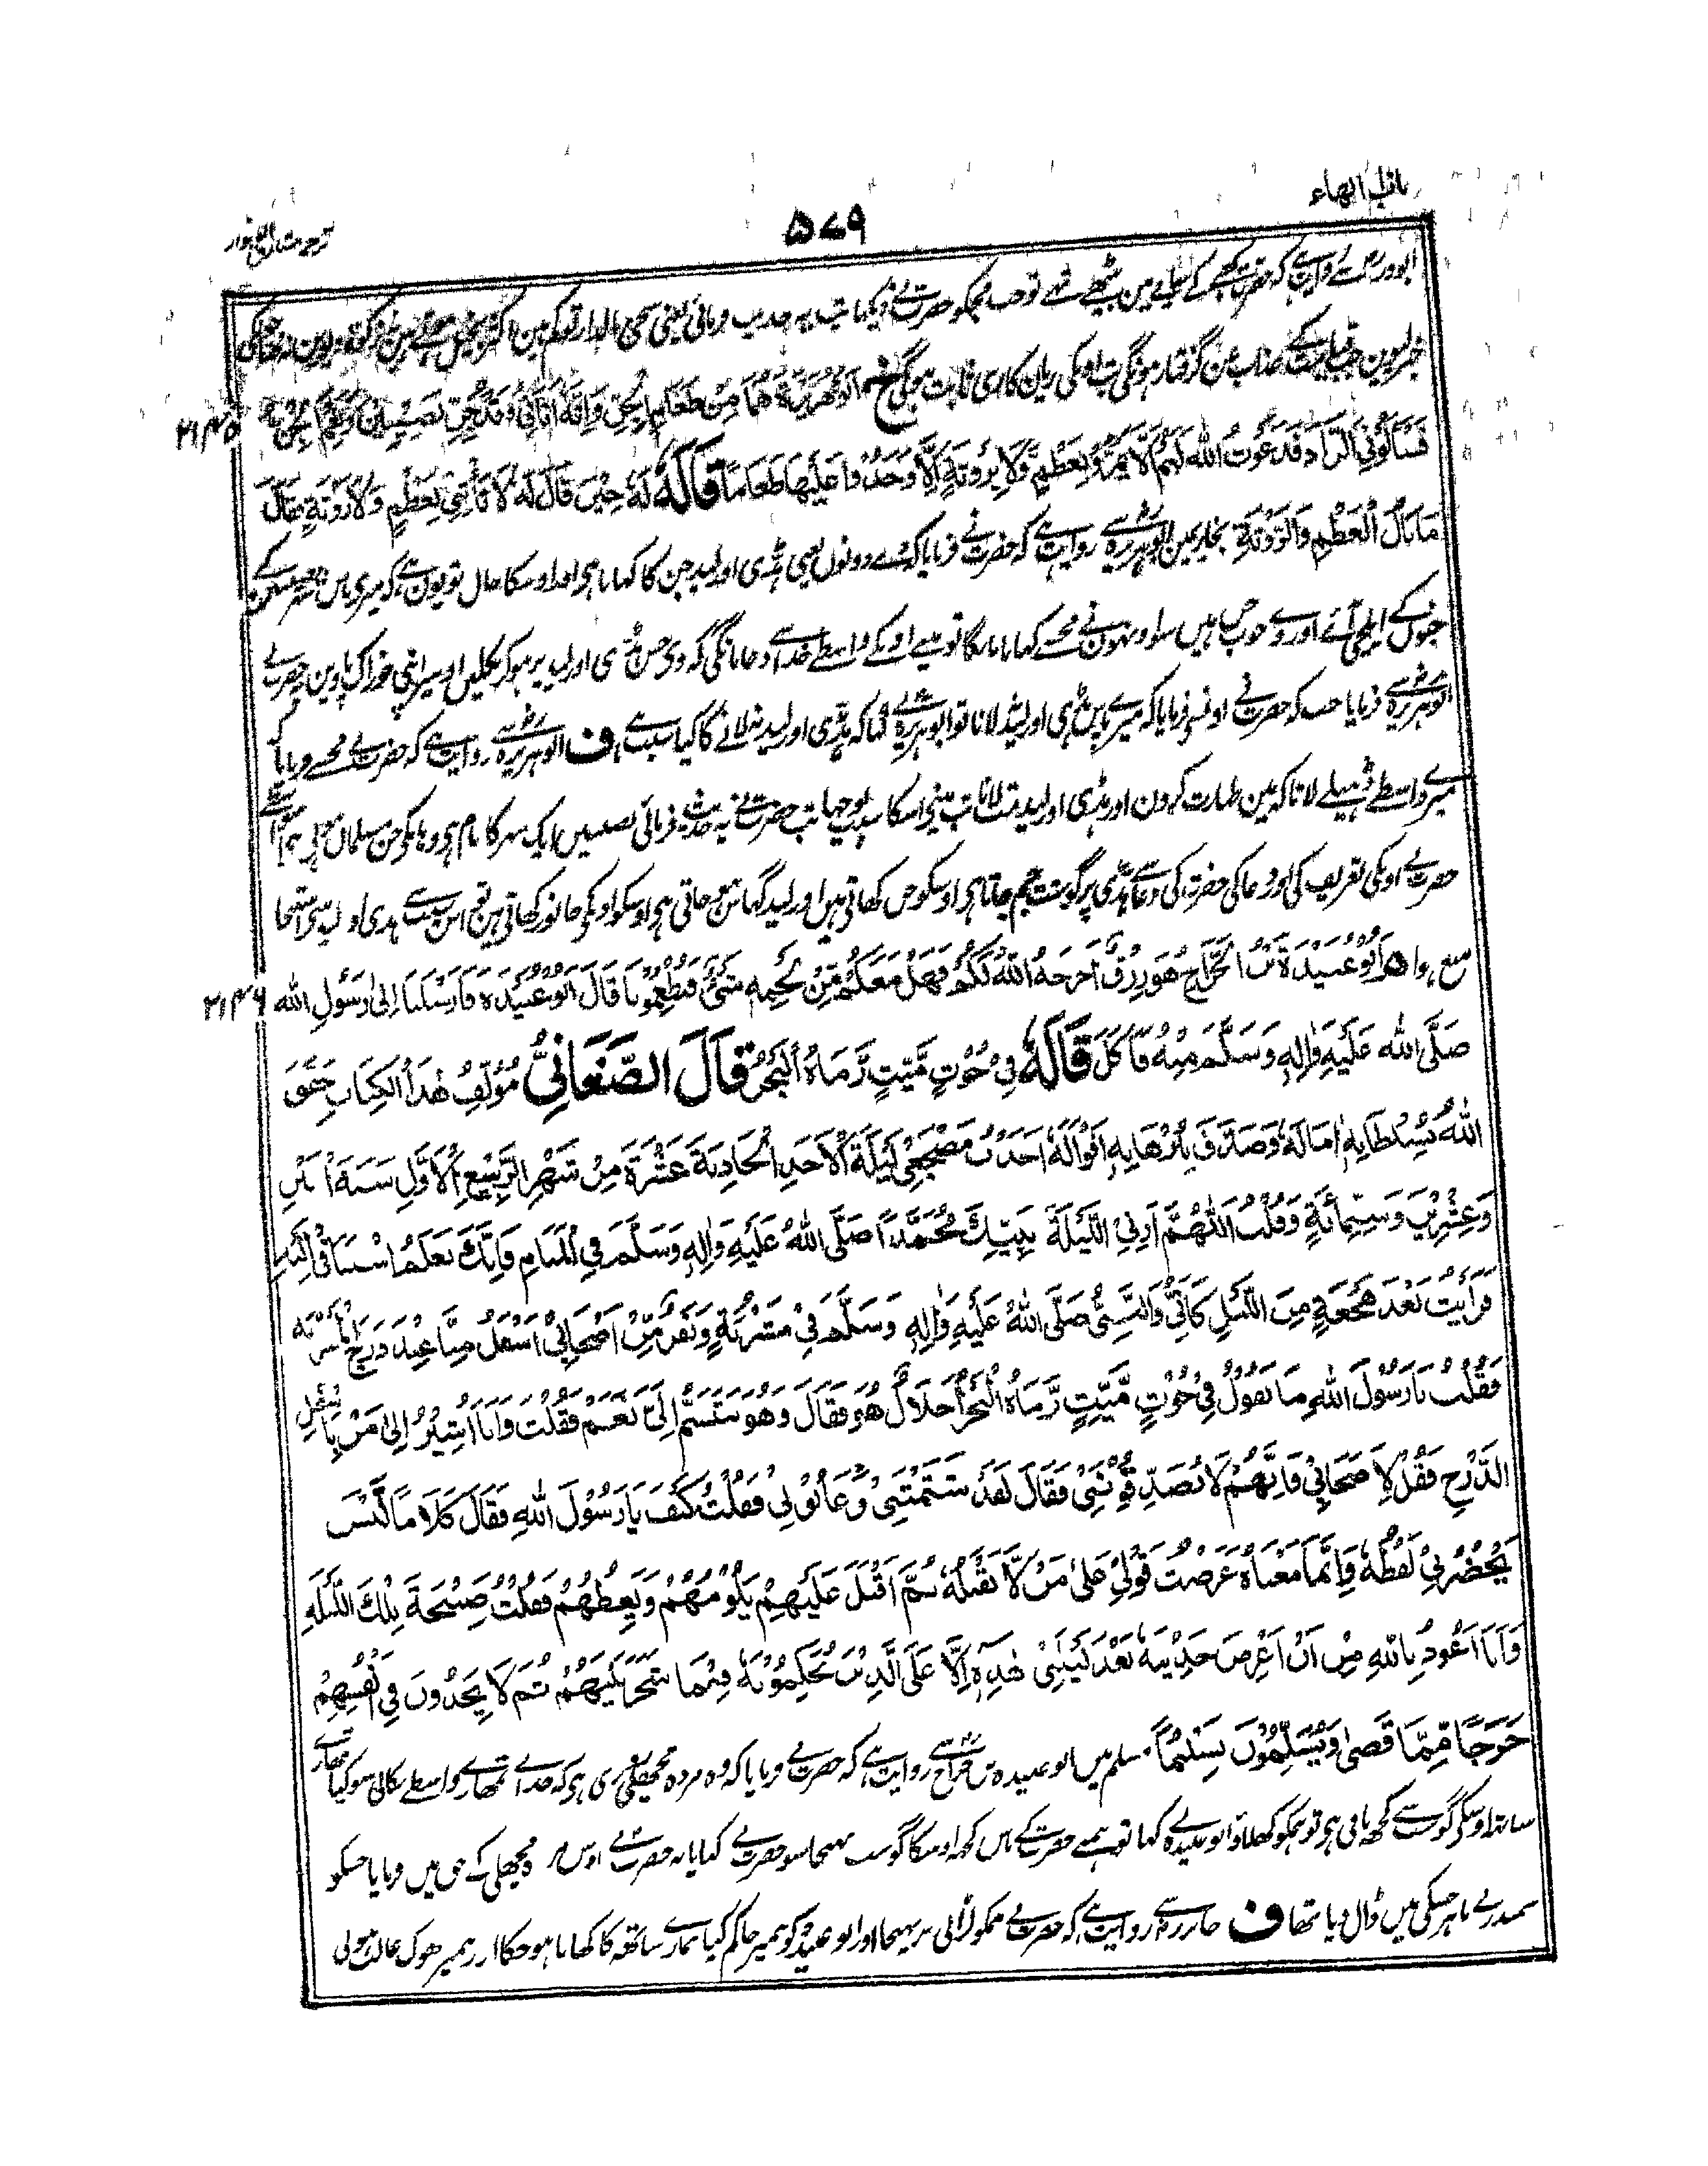 باب الهاء
۵۷۹
ابوذر رض سے روایت ہے کہ حضرت کعبے کے سایے مین بیٹھے تھے تو جب مجکو حضرت نے دیکھا تب یہ حدیث فرمائی یعنی
خبر لیوین قیامت کے عذاب مین گرفتار ہونگی تب اونکی زیان کاری ثابت ہوگی خ ابو هريرة هما من طعام الجن وانه اتاني وفد جن نصيبين ونعم الجن
۲۱۴۵
فسألوني الزاد فدعوت الله لهم ان لا يمروا بعظم ولا بروثة الا وجدوا عليها طعاما قاله له حين قال له لا تأتني بعظم ولا روثة فقال
ما بال العظم والروثة بخاری مین ابو ہریرہ رض سے روایت ہے کہ حضرت نے فرمایا کہ وے دونوں یعنی ہڈی اور لید جن کا کھانا ہی اور اوسکا حال تو یون ہے کہ میری پاس شہر نصیبین کے
جنوں کے ایلچی آئے اور وے خوب جن ہیں سو اونہون نے مجسے کھانا مانگا تو مینے اونکے واسطے خدا سے دعا مانگی کہ وی جس ہڈی اور لید پر ہوکر نکلیں اوسپر اپنی خوراک پاوین حضرت نے
ابو ہریرہ رض سے فرمایا جب کہ حضرت نے اونسے فرمایا کہ میرے پاس ہڈی اور لید نہ لانا تو ابو ہریرہ رض نے کہا کہ ہڈی اور لید نہ لانے کا کیا سبب ہے ف ابو ہریرہ رض سے روایت ہے کہ حضرت نے مجسے فرمایا کہ
میرے واسطے ڈھیلے لانا کہ مین طہارت کرون اور ہڈی اور لید مت لانا تب مینے اسکا سبب پوچھا تب حضرت نے یہ حدیث فرمائی نصیبین ایک شہر کا نام ہی وہانکے جن مسلمان
حضرت نے اونکی تعریف کی اور دعا کی حضرت کی دعا سے ہڈی پر گوشت جم جاتا ہی اوسکو جن کھاتی ہیں اور لید گھانس ہو جاتی ہی اوسکو اونکی جانور کھاتی ہین اس سبب سے ہڈی اور لید سے استنجا
منع ہوا م ابو عبيدة بن الجراح هو رزق اخرجه الله لكم فهل معكم من لحمه شئ فتطعمونا قال ابو عبيدة فارسلنا الى رسول الله
۲۱۴۶
صلى الله عليه واله وسلم منه فاكل قاله في حوت ميت رماه البحر قال الصغاني مؤلف هذا الكتاب حقق
الله بسلطانه اماله وصدق ببرهانه اقواله اخذت مضجعي ليلة الاحد الحادية عشرة من شهر الربيع الاول سنة اثنين
وعشرين وستمائة وقلت اللهم ارني الليلة نبيك محمدا صلى الله عليه واله وسلم في المنام فانك تعلم اشتياقي اليه
فرأيت بعد هجعة من الليل كأني والنبي صلى الله عليه واله وسلم في مشربة ونفر من اصحابي اسفل منا عند درج المشربة
فقلت يا رسول الله ما تقول في حوت ميت رماه البحر احلال هو فقال وهو يتبسم الي نعم فقلت وانا اشير الى من باسفل
الدرج فقل لاصحابي فانهم لا يصدقونني فقال لقد شتمتني وعابوني فقلت كيف يا رسول الله فقال كلاما ليس
يحضرني لفظه وانما معناه عرضت قولي على من لا يقبله ثم اقبل عليهم يلومهم ويعظهم فقلت صبيحة تلك الليلة
وانا اعوذ بالله من ان اعرض حديثه بعد ليلتي هذه الا على الذين يحكمونه فيما شجر بينهم ثم لا يجدون في انفسهم
حرجا مما قضى ويسلمون تسليما مسلم میں ابو عبیدہ بن جراح رض سے روایت ہے کہ حضرت نے فرمایا کہ وہ مردہ مچھلی روزی ہی کہ خدا نے تمھارے واسطے نکالی سو کیا تمھارے
ساتھ اوسکی گوشت سے کچھ باقی ہی تو ہمکو کھلاؤ ابو عبیدہ نے کہا تو ہمنے حضرت کے پاس کچھ اوسکا گوشت بھیجا سو حضرت نے کھایا یہ حضرت نے اوس مردہ مچھلی کے حق میں فرمایا جسکو
سمندر نے باہر خشکی میں ڈال دیا تھا ف جابر رض سے روایت ہے کہ حضرت نے ہمکو لڑائی پر بھیجا اور ابو عبیدہ کو ہمپر حاکم کیا ہمارے ساتھ کا کھانا ہو چکا اور ہمپر بھوک غالب ہوئی